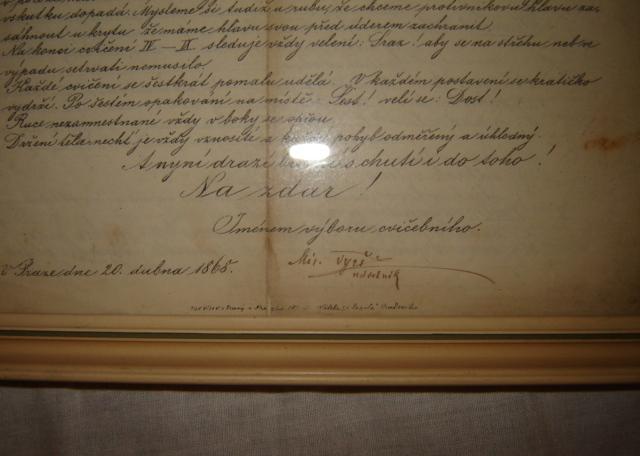 vskutku dopadá. Mysleme si tudíž a ruby, že chceme protivníkovu hlavu za-
sáhnout u krytu že máme hlavu svou před úderem zachránit.
Na konci cvičení IV – II. sleduje vždy velení: Sraz! aby se na střehu neb ve
výpadu setrvati nemusilo.
Každé cvičení se šestkrát pomalu udělá. V každém postavení se kratičko
vydrží. Po šestém opakování na místě: Šest! velí se: Dost!
Ruce nezamnestnané vždy v boky se opřou
Držení těla nechť je vždy vznosité a pohyb odměřený a úhledný.
A nyní draze s chutí i do toho!
Na zdar!
Jménem výboru cvičebního.
V Praze dne 20. dubna 1865. Mir. Tyrš
náčelník